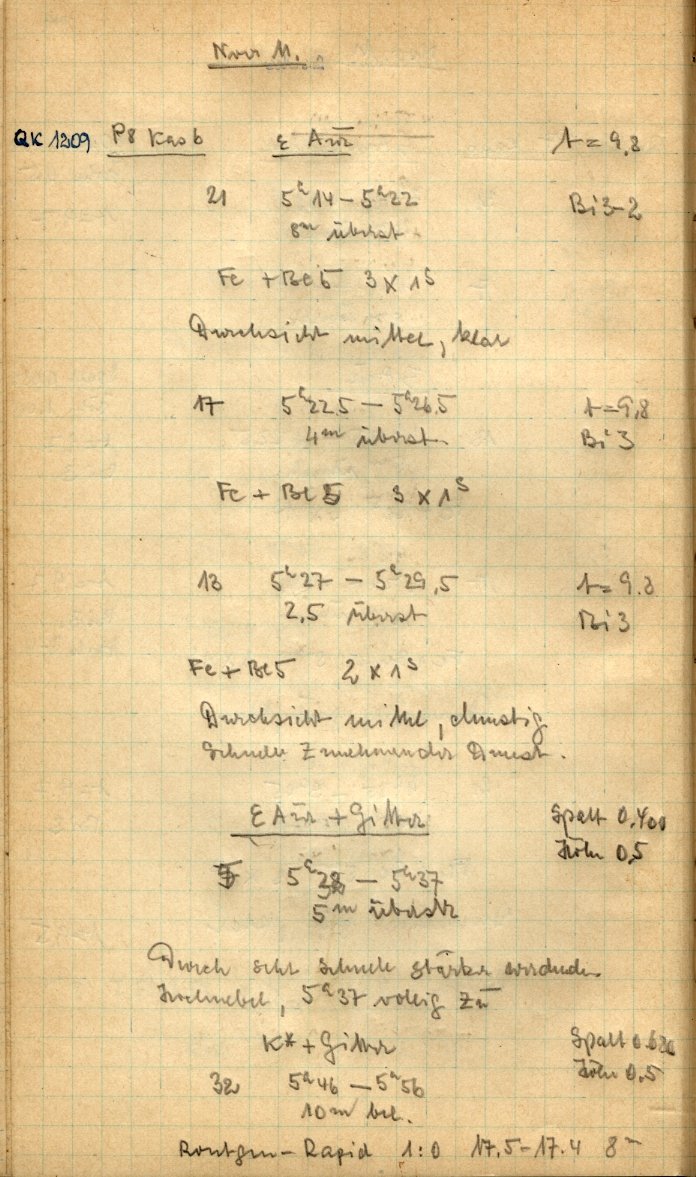 Nov 11.
QK 1209 P8 Kas b ε Aur t = 9,8
21 5h14 – 5h22 Bi 3-2
8m überst.
Fe + Be 5 3 x 1s
Durchsicht mittel, klar
17 5h22,5 – 5h26,5 t = 9,8
4m überst. Bi 3
Fe + Be 5 3 x 1s
13 5h27 – 5h29,5 t = 9.8
2,5 überst Bi 3
Fe + Be 5 2 x 1s
Durchsicht mittel, dunstig
Schnell zunehmender Dunst.
ε Aur + Gitter Spalt 0.400
5 5h32 – 5h37 Höhe 0,5
5m überstr
Durch sehr schnell stärker werdenden
Hochnebel, 5h37 völlig zu
K* + Gitter
32 5h46 – 5h56 Höhe 0,5
10m bel.
Röntgen-Rapid 1:0 17.5-17.4 8m